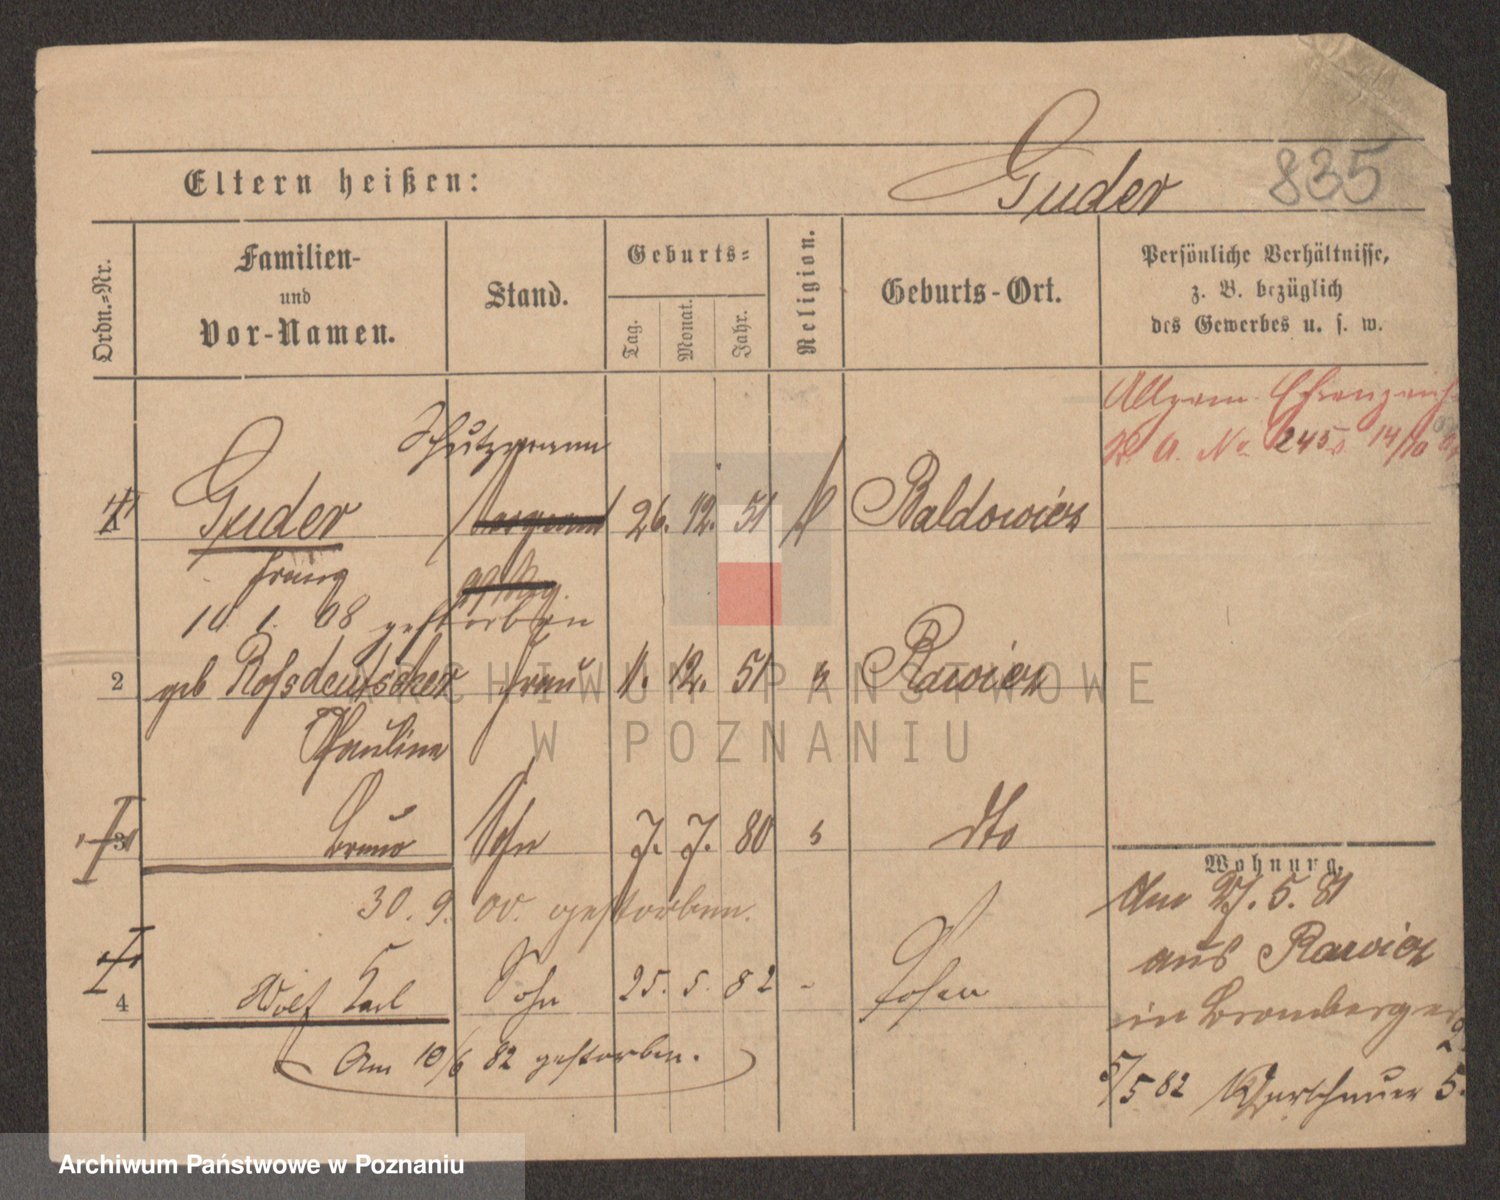 Guder 835
Eltern heißen:
Ordn.-Nr. Familien- und Vor-Namen. Stand. Geburts- Tag. Monat. Jahr. Religion. Geburts-Ort. Persönliche Verhältnisse, z. B. bezüglich des Gewerbes u. s. w.
Allgem. Ehrenzeich.
No 245 14/10
Schutzmann
1 Guder Sergeant 26. 12. 51 k Baldowicz
Franz
10 1. 08 gestorben
2 geb Rossdeutscher Frau 11. 12. 51 Rawicz
Pauline
3 Bruno Sohn 7. 7. 80 dto
30. 9. 00. gestorben.
4 Adolf Carl Sohn 25. 5. 82 - Posen
Am 10/6 82 gestorben.
Wohnung.
Am 27. 5. 81
aus Rawicz
in Bromberger
2
5/5 82 Warschauer 5.
ARCHIWUM PAŃSTWOWE
W POZNANIU
Archiwum Państwowe w Poznaniu